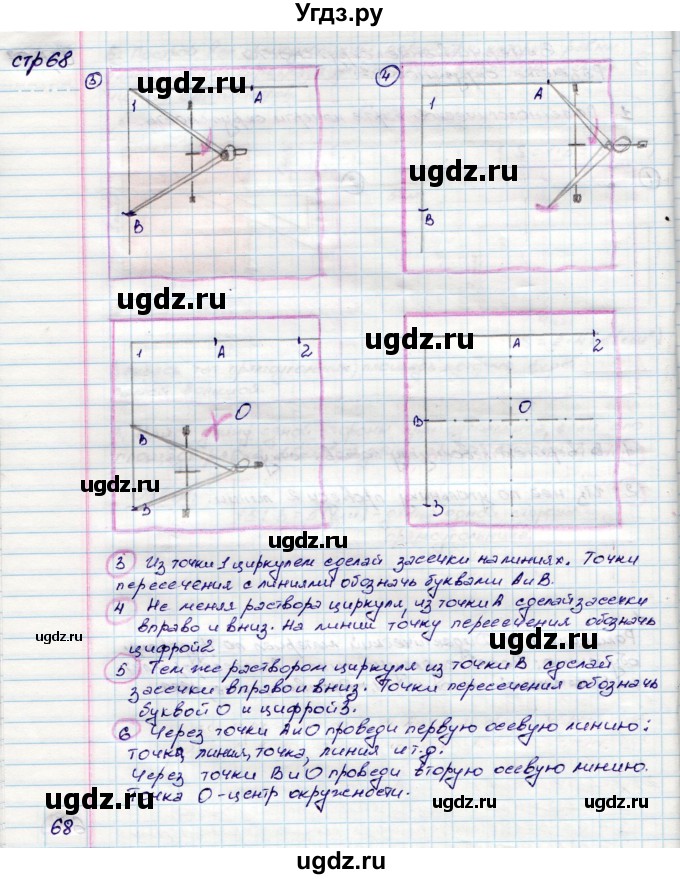 Угдз.ру
стр 68
3
4
1
А
1
А
ugdz.ru
ugdz.ru
В
В
ugdz.ru
ugdz.ru
1
А
2
А
2
О
О
В
В
ugdz.ru
ugdz.ru
3
3
3 Из точки 1 циркулем сделай засечки на линиях. Точки
пересечения с линиями обозначь буквами А и В.
4 Не меняя раствора циркуля, из точки А сделай засечки
вправо и вниз. На линии точку пересечения обозначь
цифрой 2
ugdz.ru
ugdz.ru
5 Тем же раствором циркуля из точки В сделай
засечки вправо и вниз. Точки пересечения обозначь
буквой О и цифрой 3.
6 Через точки А и О проведи первую осевую линию:
точка, линия, точка, линия и т.д.
Через точки В и О проведи вторую осевую линию.
Точка О - центр окружности.
ugdz.ru
ugdz.ru
68
ugdz.ru